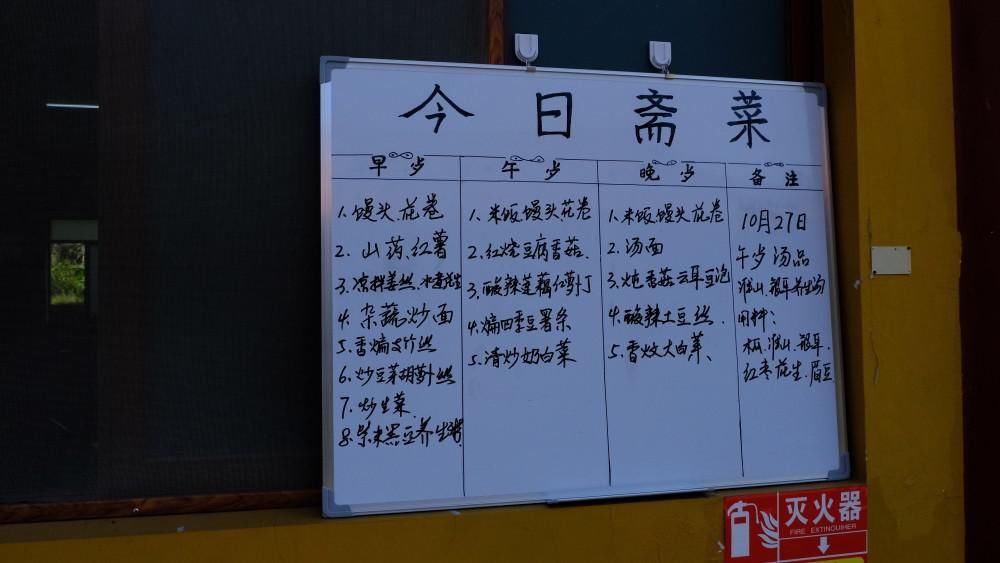 今日斋菜
早 岁
午 岁
晚 岁
备 注
1. 馒头.花卷
2. 山药.红薯
3. 凉拌姜丝.水煮花生
4. 杂蔬炒面
5. 香煸支竹丝
6. 炒豆菜胡萝卜丝
7. 炒生菜
8. 紫米黑豆养生粥
1. 米饭馒头花卷
2. 红烧豆腐香菇.
3. 酸辣莲藕红萝卜丁
4. 煸四季豆薯条
5. 清炒奶白菜
1. 米饭馒头花卷
2. 汤面
3. 炖香菇云耳豆泡
4. 酸辣土豆丝.
5. 香炆大白菜、
10月27日
午岁汤品
淮山.银耳养生汤
用料:
木瓜.淮山.银耳.
红枣.花生.眉豆
灭火器
FIRE EXTINGUIHER